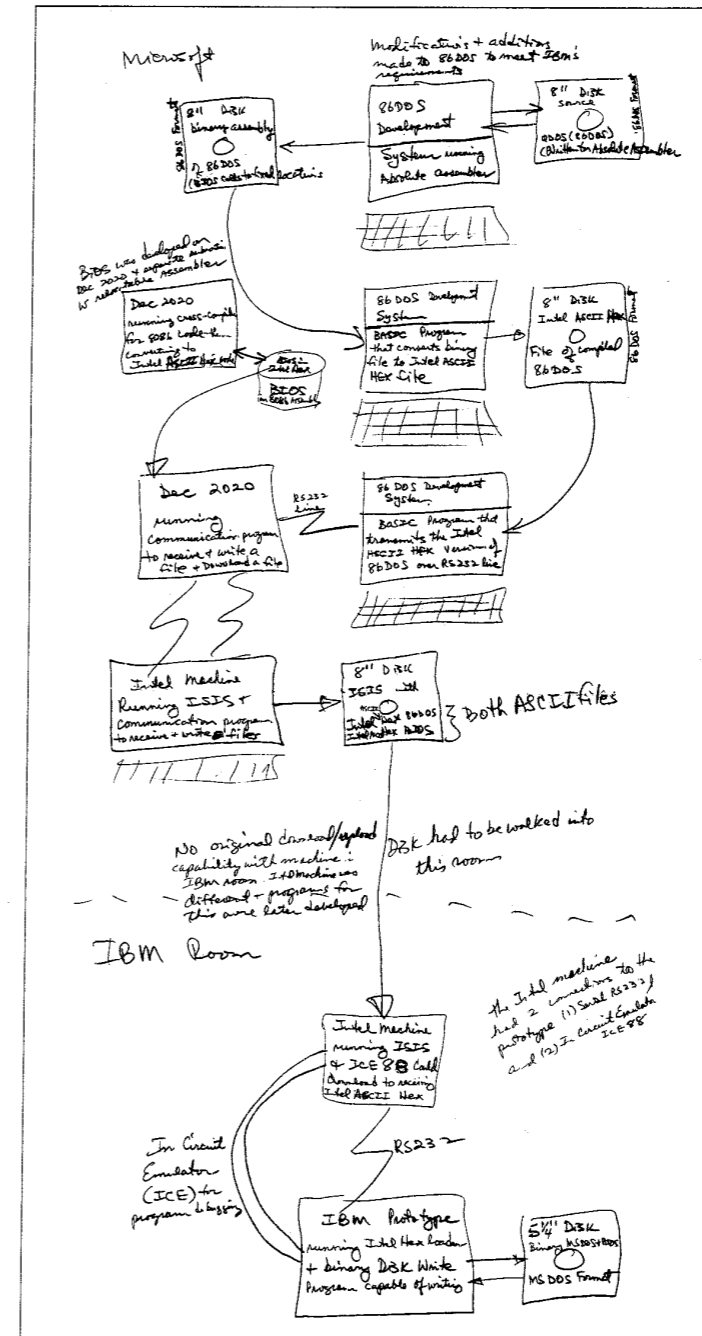 Microsoft
Modifications + additions
made to 86DOS to meet IBM's
requirements
8" Disk
binary assembly
of 86DOS
(BIOS calls to fixed locations
86DOS Format
86DOS
Development
System running
Absolute assembler
8" Disk
source
QDOS (86DOS)
(Written for Absolute Assembler
86DOS Format
BIOS was developed on
Dec 2020 +
w relocatable Assembler
Dec 2020
running cross-compiler
for 8086 code
converting to
Intel ASCII Hex
BIOS
86 DOS Development
System
BASIC Program
that converts binary
file to Intel ASCII
HEX file
8" Disk
Intel ASCII Hex
File of compiled
86DOS
86 DOS Format
Dec 2020
running
communication program
to receive + write a
file + Download a file
RS232
line
86 DOS Development
System
BASIC Program that
transmits the Intel
ASCII HEX version of
86DOS over RS232 line
Intel Machine
Running ISIS +
communication program
to receive + write files
8" Disk
ISIS with
ASCII
Intel Hex 86DOS
Intel Hex BIOS
Both ASCII files
No original download/upload
capability with machine in
IBM room. Intel Machine was
different + programs for
this were later developed
Disk had to be walked into
this room
IBM Room
the Intel machine
had 2 connections to the
prototype (1) Serial RS232
and (2) In Circuit Emulator
ICE 88
Intel Machine
running ISIS
& ICE 88 Could
download to receiving
Intel ASCII Hex
In Circuit
Emulator
(ICE) for
program debugging
RS232
IBM Prototype
running Intel Hex loader
+ binary Disk Write
Program capable of writing
5¼" Disk
Binary MSDOS+BIOS
MS DOS Format